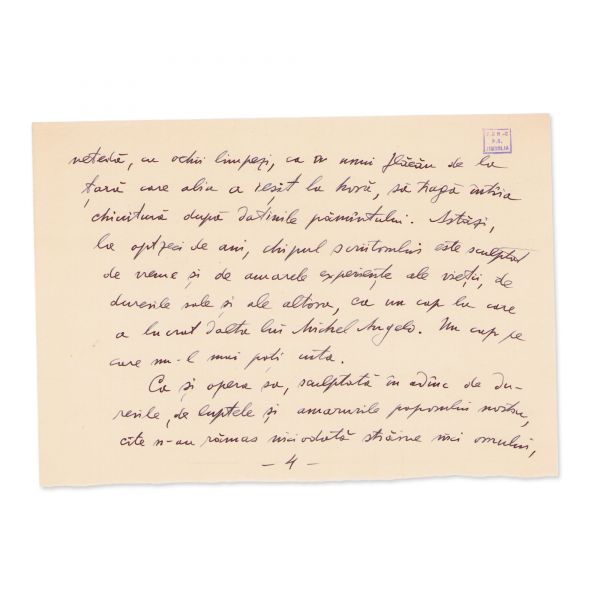 F.U.N.-C
P.S.
JIMBOLIA
netedă, cu ochii limpezi, ca a unui flăcău de la
țară care abia a ieșit la horă, să tragă întîia
chiuitură după datinile pămîntului. Astăzi,
la optzeci de ani, chipul scriitorului este sculptat
de vreme și de amarele experiențe ale vieții, de
durerile sale și ale altora, ca un cap la care
a lucrat dalta lui Michel Angelo. Un cap pe
care nu-l mai poți uita.
Ca și opera sa, sculptată în adînc de du-
rerile, de luptele și amarurile poporului nostru,
cîte n-au rămas niciodată străine nici omului,
- 4 -